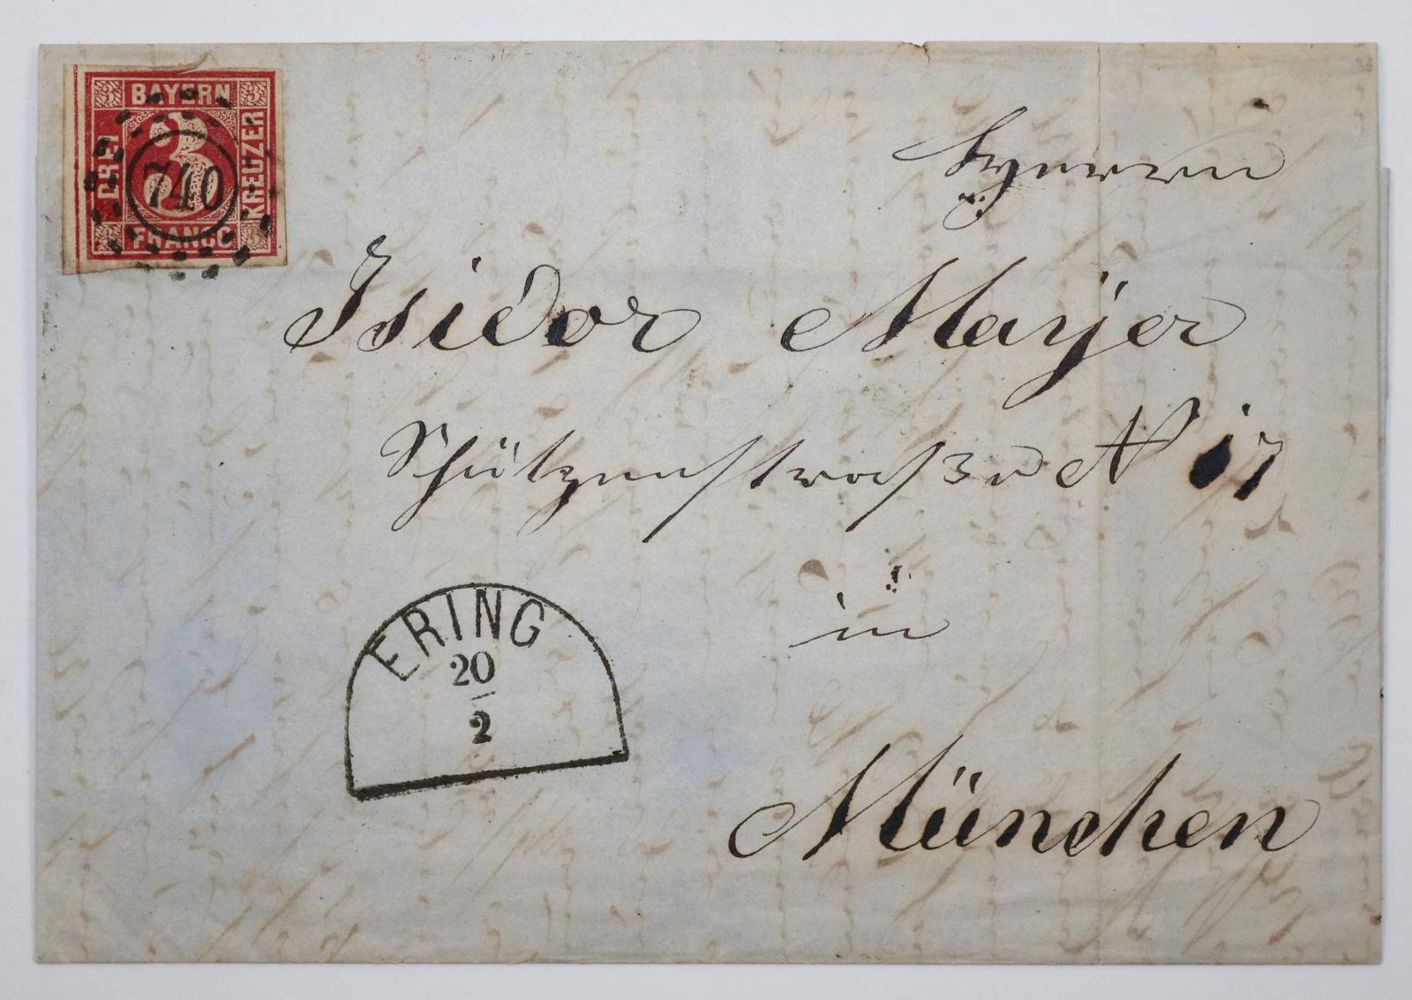 BAYERN
DREI
3
KREUZER
FRANCO
740
Herrn
Isidor Mayer
Schützenstraße N 17
in
München
ERING
20
2